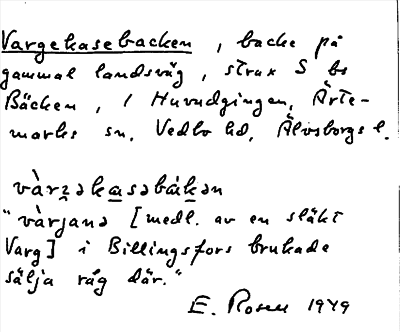 Vargekasebacken, backe på
gammal landsväg, strax S bs
Bäcken, i Huvudgingen, Ärte-
marks sn, Vedbo hd, Älvsborgs l.
vàrʒəkasəbákən
"vàrjanə [medl. av en släkt
Varg] i Billingsfors brukade
sälja råg där."
E. Rosell 1949